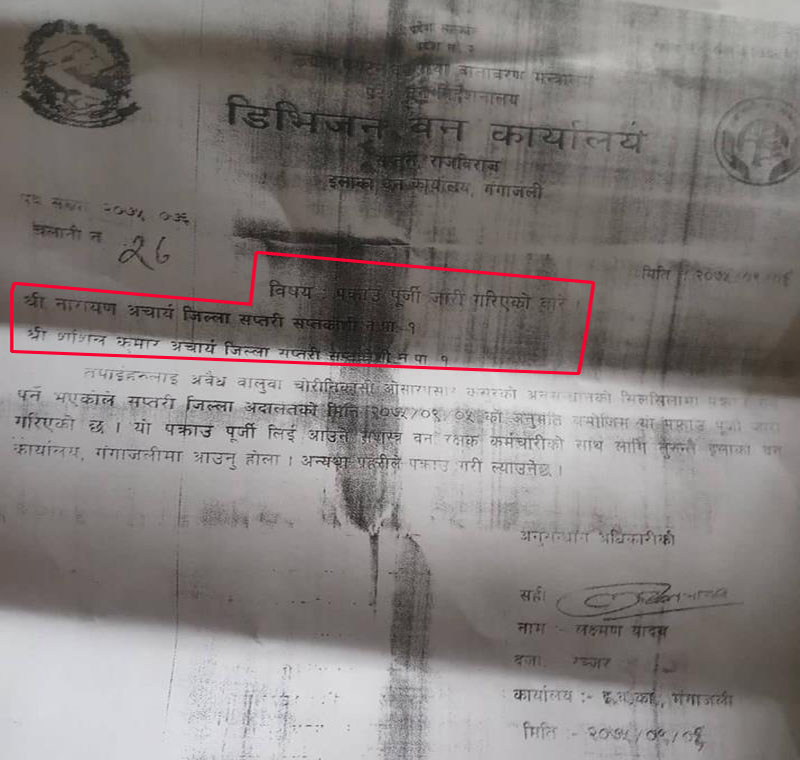 प्रदेश सरकार
वातावरण मन्त्रालय
वन निर्देशनालय
डिभिजन वन कार्यालय
सप्तरी, राजविराज
इलाका वन कार्यालय, गंगाजली
पत्र संख्या २०७५ ०७६
चलानी नं 26
मिति :
विषय : पक्राउ पूर्जी जारी गरिएको बारे ।
श्री नारायण अचार्य जिल्ला सप्तरी सप्तकोशी न पा १
श्री कुमार अचार्य जिल्ला सप्तरी सप्तकोशी न पा १
तपाईहरुलाइ अवैध वालुवा चोरीनिकासी ओसारपसार कसुरको अनुसन्धानको सिलसिलामा पक्राउ
पर्ने भएकोले सप्तरी जिल्ला अदालतको मिति २०७५/०९/०५ को अनुमति बमोजिम यो पक्राउ पूर्जी जारी
गरिएको छ । यो पक्राउ पूर्जी लिई आउने सशस्त्र वन रक्षक कर्मचारीको साथ लागि तुरुन्त इलाका वन
कार्यालय, गंगाजलीमा आउनु होला । अन्यथा प्रहरीले पक्राउ गरी ल्याउनेछ ।
अनुसन्धान अधिकारीको
सही
नाम :- लक्ष्मण यादव
दर्जा रेञ्जर
कार्यालय :- इ.व.का., गंगाजली
मिति :- २०७५/०९/०६